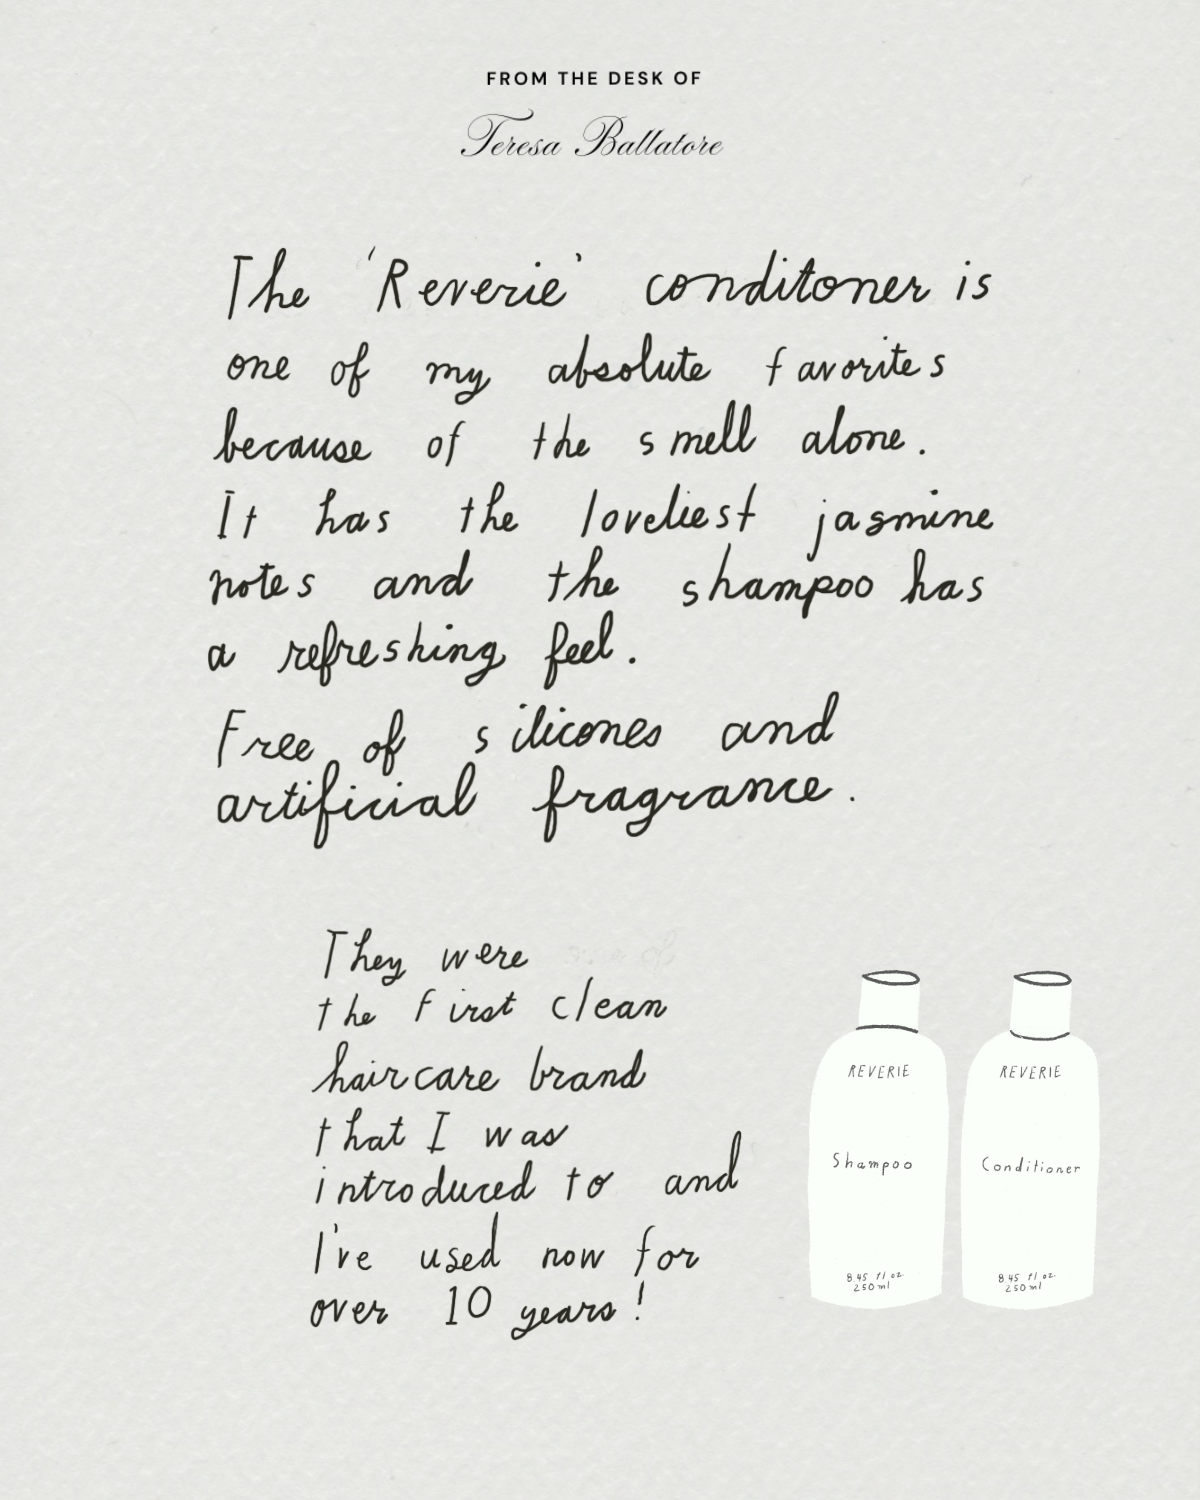 FROM THE DESK OF
Teresa Ballatore
The 'Reverie' conditoner is
one of my absolute favorites
because of the smell alone.
It has the loveliest jasmine
notes and the shampoo has
a refreshing feel.
Free of silicones and
artificial fragrance.
They were
the first clean
haircare brand
that I was
introduced to and
I've used now for
over 10 years!
REVERIE
Shampoo
8.45 fl oz
250ml
REVERIE
Conditioner
8.45 fl oz
250ml